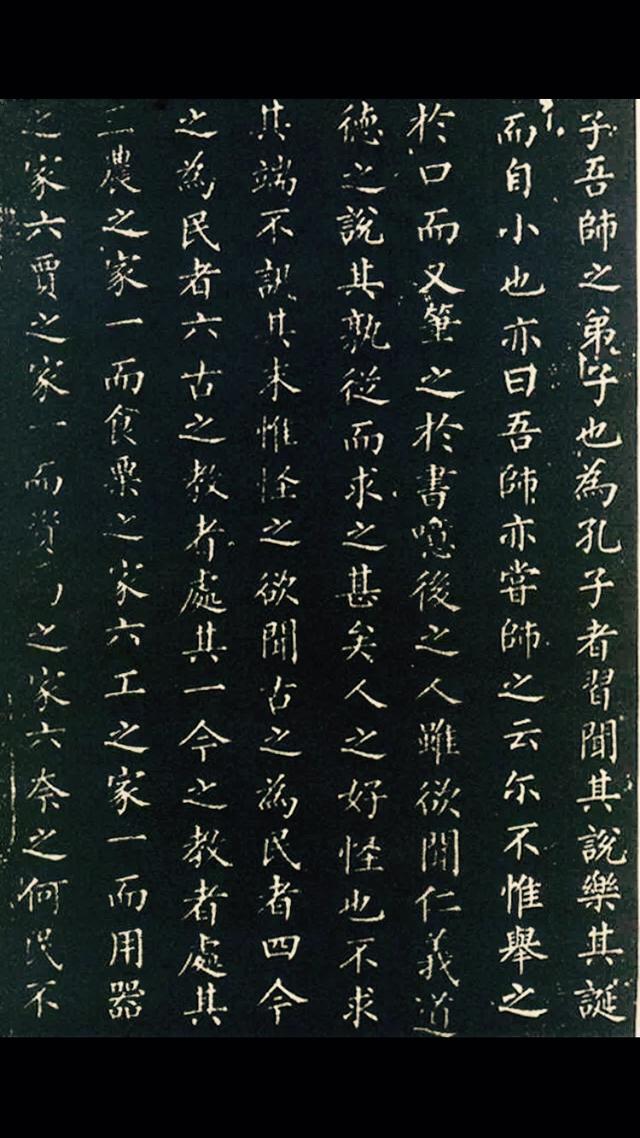 子吾師之弟子也為孔子者習聞其說樂其誕
而自小也亦曰吾師亦嘗師之云尒不惟舉之
於口而又筆之於書噫後之人雖欲聞仁義道
德之說其孰從而求之甚矣人之好怪也不求
其端不訊其末惟怪之欲聞古之為民者四今
之為民者六古之教者處其一今之教者處其
三農之家一而食粟之家六工之家一而用器
之家六賈之家一而資之家六奈之何民不